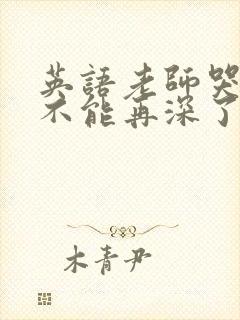 英語老師哭
不能再深了
木青尹